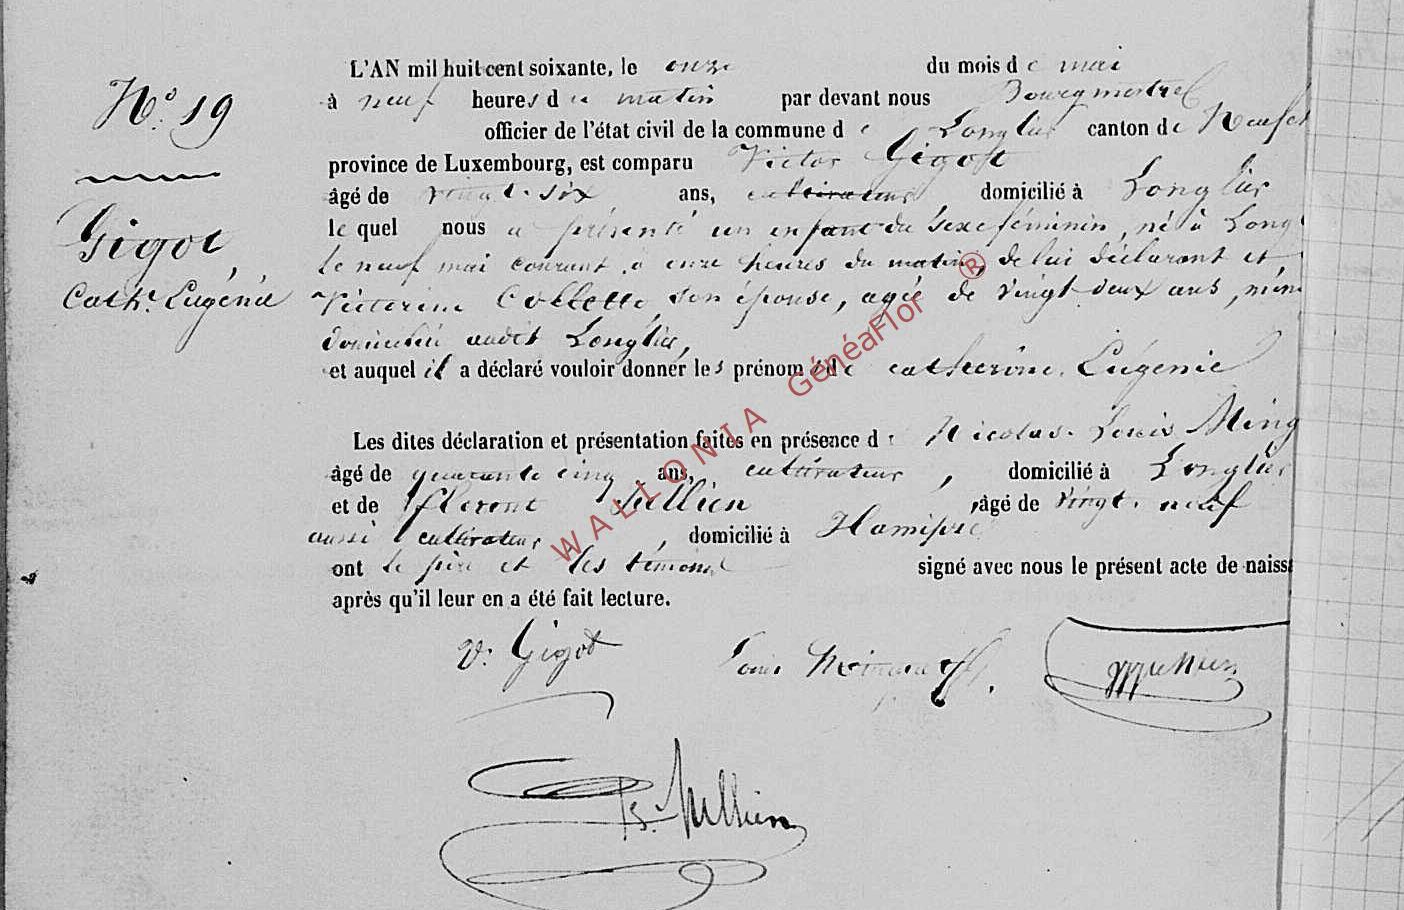 N.° 19
Gigot,
Cathe. Eugénie
L'AN mil huit cent soixante, le onze du mois de mai
à neuf heures du matin par devant nous Bourgmestre
officier de l'état civil de la commune de Longlier canton de Neufch
province de Luxembourg, est comparu Victor Gigot
âgé de vingt-six ans, cultivateur, domicilié à Longlier
lequel nous a présenté un enfant du sexe féminin, né à Long
le neuf mai courant à onze heures du matin, de lui déclarant et
Victorine Collette, son épouse, agée de vingt deux ans,
domiciliée audit Longlier,
et auquel il a déclaré vouloir donner les prénoms de catherine, Eugénie
Les dites déclaration et présentation faites en présence de Nicolas Louis Ming
âgé de quarante cinq ans, cultivateur, domicilié à Longlier
et de Jullien, âgé de vingt neuf
aussi cultivateur, domicilié à Hamipré
ont le père et les témoins signé avec nous le présent acte de naiss
après qu'il leur en a été fait lecture.
V. Gigot Louis
Jullien
WALLONIA GénéaFlor ®